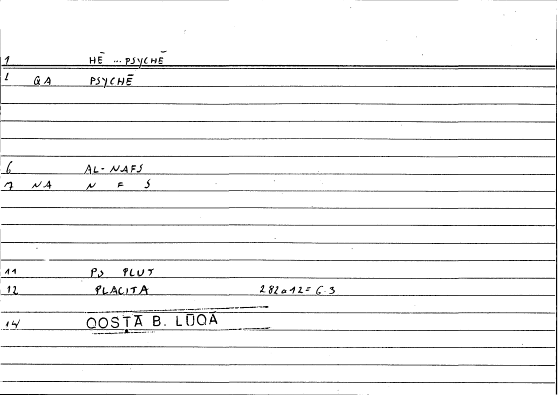 1 HĒ ... PSYCHĒ
1 QA PSYCHĒ
6 AL-NAFS
7 NA N F S
11 PS PLUT
12 PLACITA 282a12= 6.3
14 QOSṬĀ B. LŪQĀ